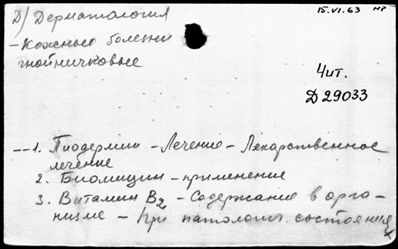 Д) Дерматология
15.VI.63 нр
- Кожные болезни
гнойничковые
Чит.
Д 29033
-- 1. Пиодермии - Лечение - Лекарственное
лечение
2. Биомицин - применение
3. Витамин B2 - Содержание в орга-
низме - при патологич. состояния
х